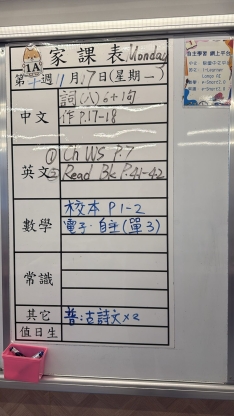 1A 家課表 Monday
第十週 11月17日(星期一)
中文
詞(八)6+1句
作 P.17-18
英文
① Ch WS P.7
② Read Bk P.41-42
數學
校本 P1-2
電子·自主(單3)
常識
其它
普:古詩文x2
值日生
自主學習 網上平台